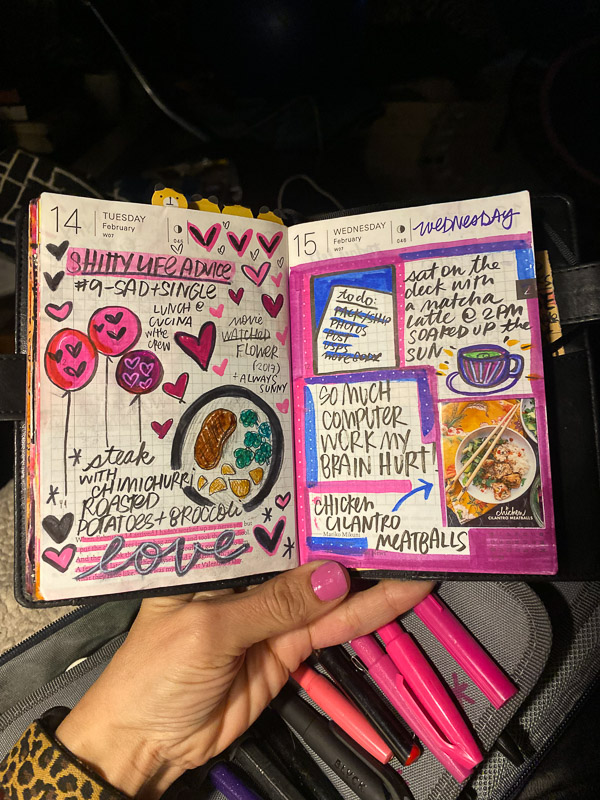 14
TUESDAY
February
W07
045
SHITTY LIFE ADVICE
#9 - SAD + SINGLE
LUNCH @
CUCINA
W/THE
CREW
MOVIE
WATCHED
FLOWER
(2017)
+ ALWAYS
SUNNY
steak
WITH
CHIMICHURRI
ROASTED
POTATOES + BROCCOLI
love
15
WEDNESDAY
February
W07
046
WEDNESDAY
to do:
PACK/SHIP
PHOTOS
POST
USPS
sat on the
deck with
a matcha
latte @ 2AM
SOAKED UP the
SUN
SO MUCH
COMPUTER
WORK MY
BRAIN HURT!
chicken
CILANTRO MEATBALLS
Chicken
CILANTRO
MEATBALLS
Mariko Mikuni